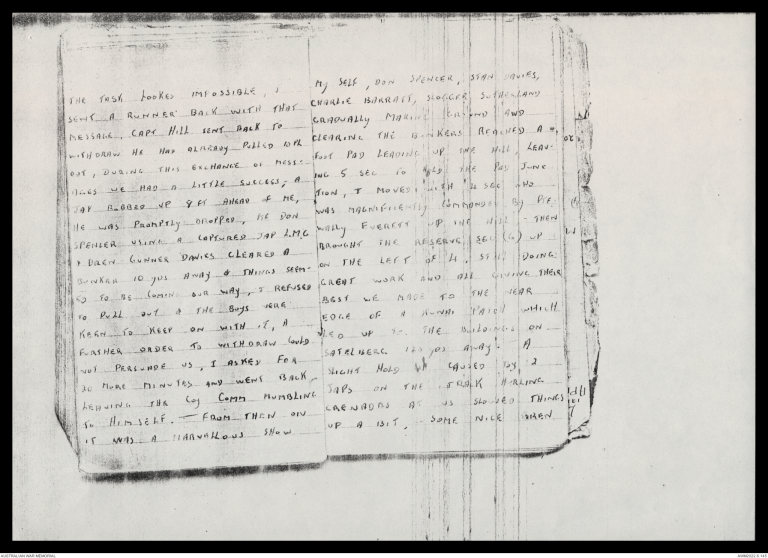 THE TASK LOOKED IMPOSSIBLE, I
SENT A RUNNER BACK WITH THAT
MESSAGE. CAPT HILL SENT BACK TO
WITHDRAW HE HAD ALREADY PULLED 10 PL
OUT, DURING THIS EXCHANGE OF MESS-
AGES WE HAD A LITTLE SUCCESS, A
JAP BOBBED UP 8 FT AHEAD OF ME,
HE WAS PROMPTLY DROPPED, DON
SPENCER USING A CAPTURED JAP L.M.G
& BREN GUNNER DAVIES CLEARED A
BUNKER 10 YDS AWAY & THINGS SEEM-
ED TO BE COMING OUR WAY, I REFUSED
TO PULL OUT & THE BOYS WERE
KEEN TO KEEP ON WITH IT, A
FURTHER ORDER TO WITHDRAW COULD
NOT PERSUADE US, I ASKED FOR
20 MORE MINUTES AND WENT BACK
LEAVING THE COY COMM MUMBLING
TO HIMSELF. — FROM THEN ON
IT WAS A MARVALLOUS SHOW
MY SELF, DON SPENCER, STAN DAVIES,
CHARLIE BARRATT, SLOGGER SUTHERLAND
GRADUALLY MAKING GROUND AND
CLEARING THE BUNKERS REACHED A
FOOT PAD LEADING UP THE HILL, LEAV-
ING 5 SEC TO HOLD THE PAD JUNC
TION, I MOVED WITH 4 SEC WHO
WAS MAGNIFICENTLY COMMANDED BY PTE
WALLY EVERETT UP THE HILL - THEN
BROUGHT THE RESERVE SEC (6) UP
ON THE LEFT OF 4, STILL DOING
GREAT WORK AND ALL GIVING THEIR
BEST WE MADE TO THE REAR
EDGE OF A KUNAI PATCH WHICH
LED UP TO THE BUILDINGS ON
SATELBERG YDS AWAY. A
SLIGHT HOLD UP CAUSED BY 2
JAPS ON THE TRACK HURLING
GRENADES AT US SLOWED THINGS
UP A BIT, SOME NICE BREN
AUSTRALIAN WAR MEMORIAL